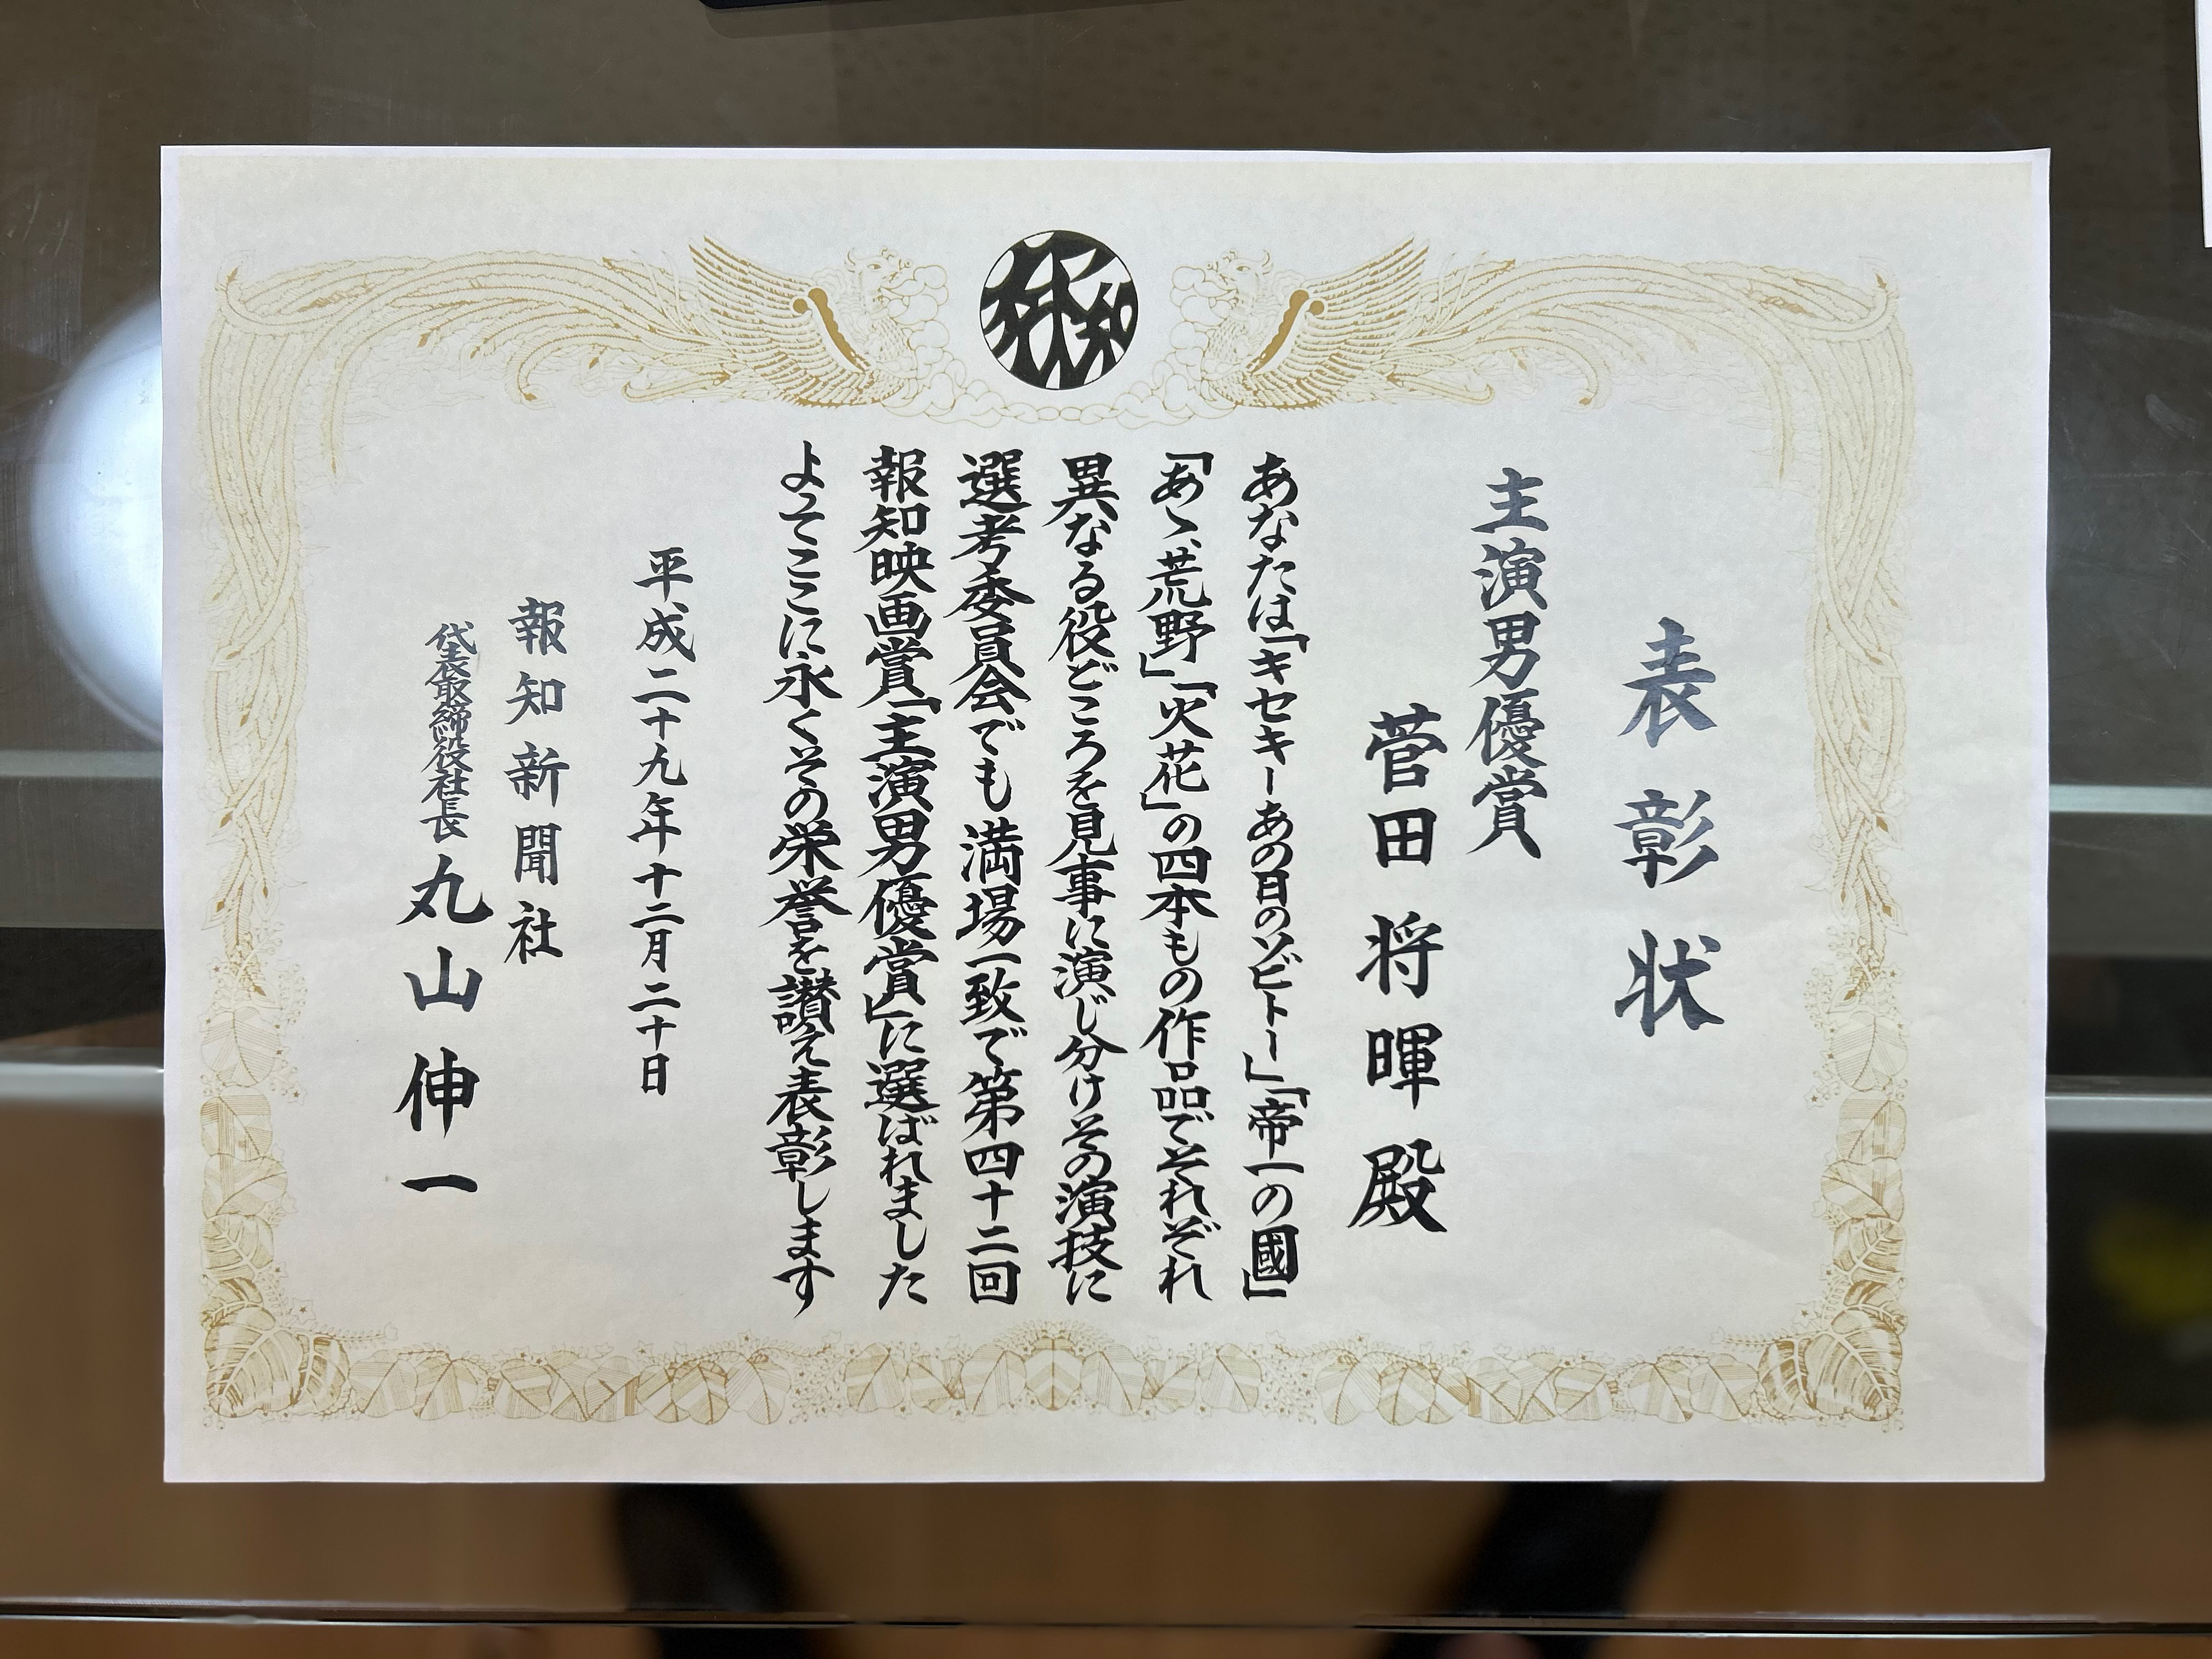 報知
表彰状
主演男優賞
菅田将暉殿
あなたは「キセキーあの日のソビトー」「帝一の國」
「あゝ、荒野」「火花」の四本もの作品でそれぞれ
異なる役どころを見事に演じ分けその演技に
選考委員会でも満場一致で第四十二回
報知映画賞「主演男優賞」に選ばれました
よってここに永くその栄誉を讃え表彰します
平成二十九年十二月二十日
報知新聞社
代表取締役社長 丸山伸一